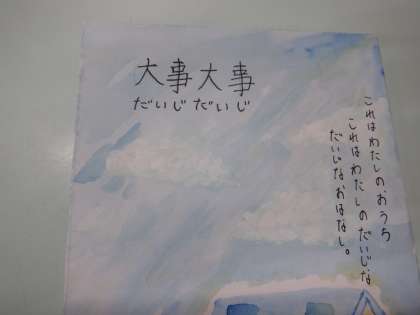 大事大事
だいじだいじ
これはわたしのおうち
これはわたしのだいじな
だいじなおはなし。